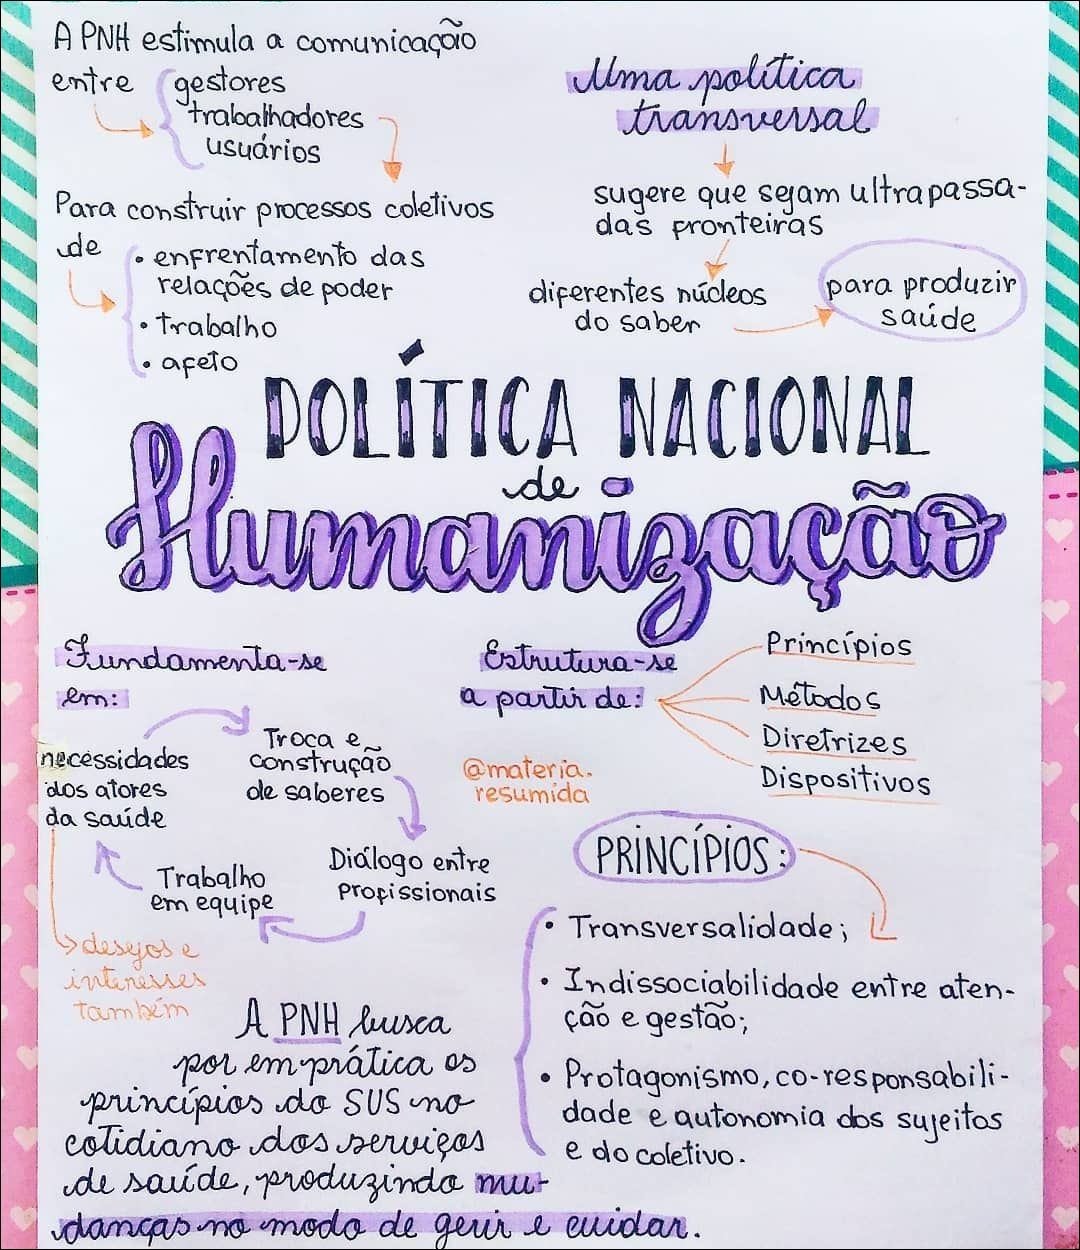 A PNH estimula a comunicação
entre gestores
trabalhadores
usuários
Para construir processos coletivos
de
• enfrentamento das
relações de poder
• trabalho
• afeto
Uma política
transversal
sugere que sejam ultrapassa-
das fronteiras
diferentes núcleos
do saber
para produzir
saúde
POLÍTICA NACIONAL
de
Humanização
Fundamenta-se
em:
necessidades
dos atores
da saúde
Troca e
construção
de saberes
Diálogo entre
profissionais
Trabalho
em equipe
desejos e
interesses
também
Estrutura-se
a partir de:
Princípios
Métodos
Diretrizes
Dispositivos
@materia.
resumida
PRINCÍPIOS:
• Transversalidade;
• Indissociabilidade entre aten-
ção e gestão;
• Protagonismo, co-responsabili-
dade e autonomia dos sujeitos
e do coletivo.
A PNH busca
por em prática os
princípios do SUS no
cotidiano dos serviços
de saúde, produzindo mu-
danças no modo de gerir e cuidar.